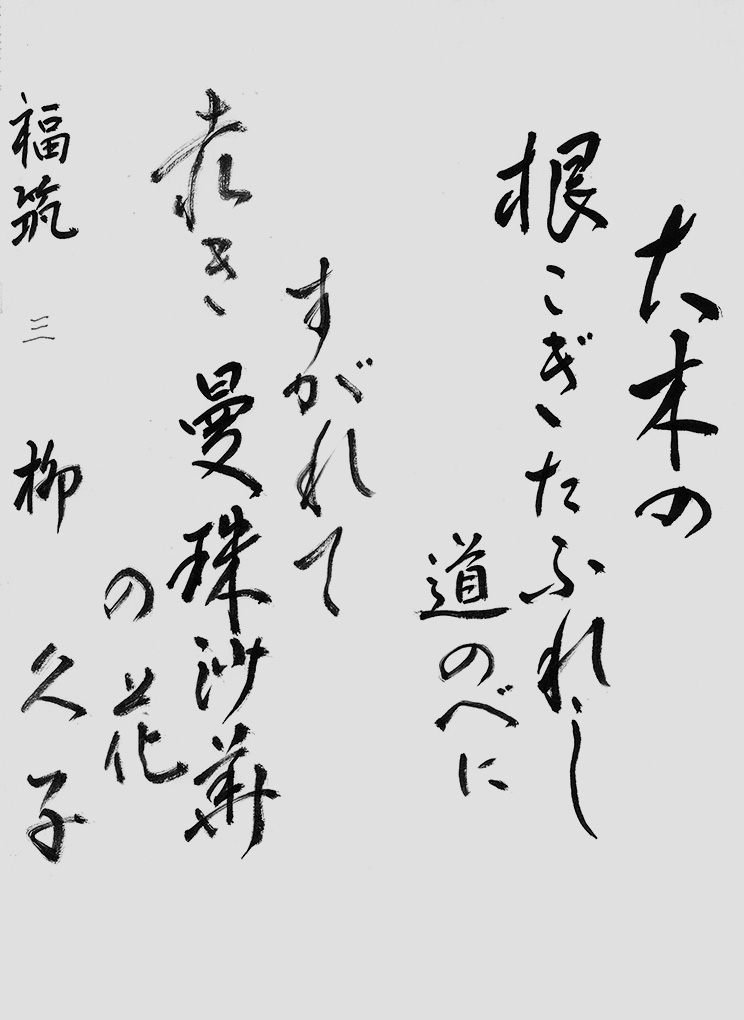 大木の
根こぎたふれし
道のべに
すがれて
赤き曼珠沙華
の花
福筑 三 柳 久子